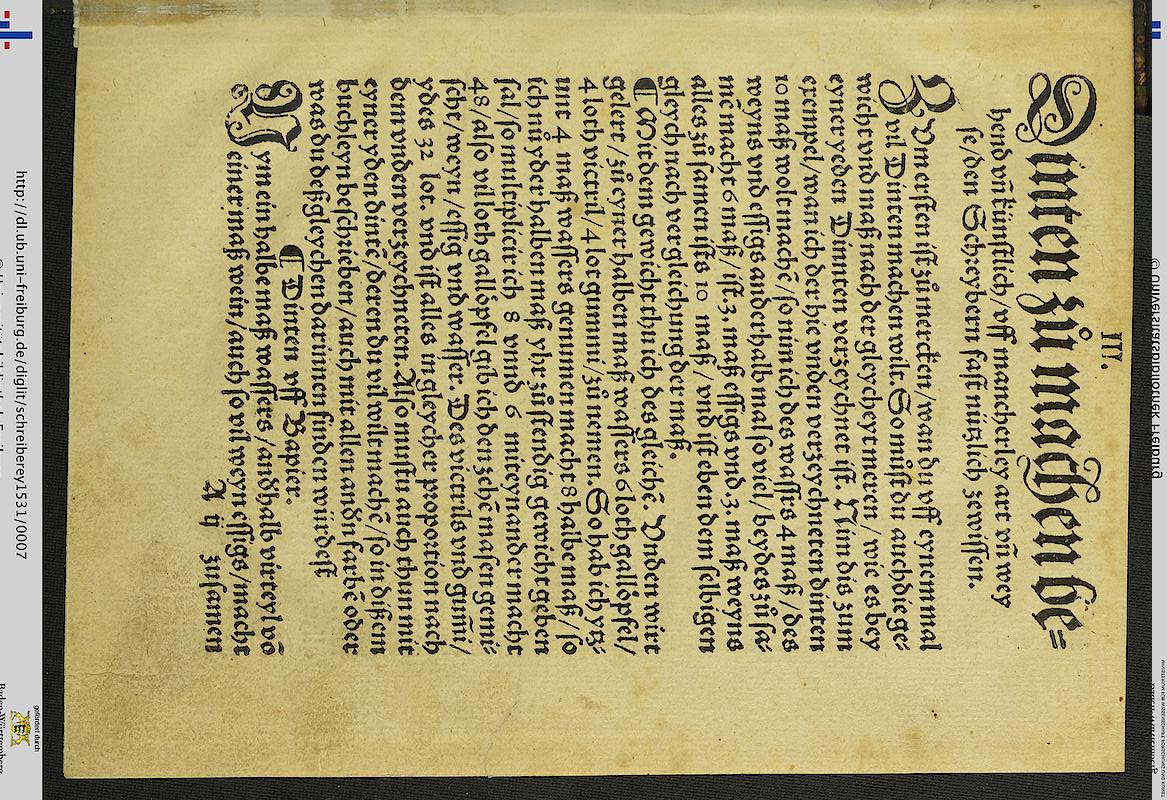 III.
Dinten zů machen be⸗
hend vñ künstlich/ vff mancherley art vñ wey
se/ den Scheybern fast nützlich zewissen.
ZVm ersten ist zů mercken/ wan du vff eynem mal
vil Dinten machen wilt. So můst du auch die ge⸗
wicht vnd maß nach der gleycheyt meren/ wie es bey
eyner yeden Dinnten verzeychnet ist. Nim dis zum
exempel/ wan ich der hie vnden verzeychneten dinten
10 maß wolt machẽ/ so nim ich des wassrs 4 maß/ des
weyns vnd essigs anderhalb mal so viel/ beydes zů sa⸗
mẽ macht 6 maß/ ist 3 maß essigs vnd 3 maß weyns
alles zů samen ists 10 maß/ vnd ist eben dem selbigen
gleych nach vergleichung der maß.
¶ Mit dem gewicht thu ich des gleichẽ. Vnden wirt
gelert/ zů eyner halben maß wassers 6 loth gallöpfel/
4 loth victril/ 4 lot gummi/ zů nemen. So hab ich ytz⸗
unt 4 maß wassers genummen macht 8 halbe maß/ so
ich nů yder halben maß yhr zůstendig gewicht geben
sal/ so multiplicir ich 8 vnnd 6 mit eynander macht
48/ also vil loth gallöpfel gib ich den zehẽ masen gemi⸗
scht/ weyn/ essig vnd wasser. Des victrils vnd gum̃i/
ydes 32 lot. vnd ist alles in gleycher proportion nach
dem vnden verzeychneten. Also mustu auch thun mit
eyner yden dintẽ/ deren du vil wilt machẽ/ so in dißem
buchleyn beschrieben/ auch mit allen andn̄ farbẽ oder
was du deßgleychen darinnen finden würdest
¶ Dinten vff Bapier.
NYm ein halbe maß wassers/ andhalb virteyl võ
einer maß wein/ auch so vil weyn essigs/ macht
A ij zusamen
http://dl.ub.uni-freiburg.de/diglit/schreiberey1531/0007
gefördert durch